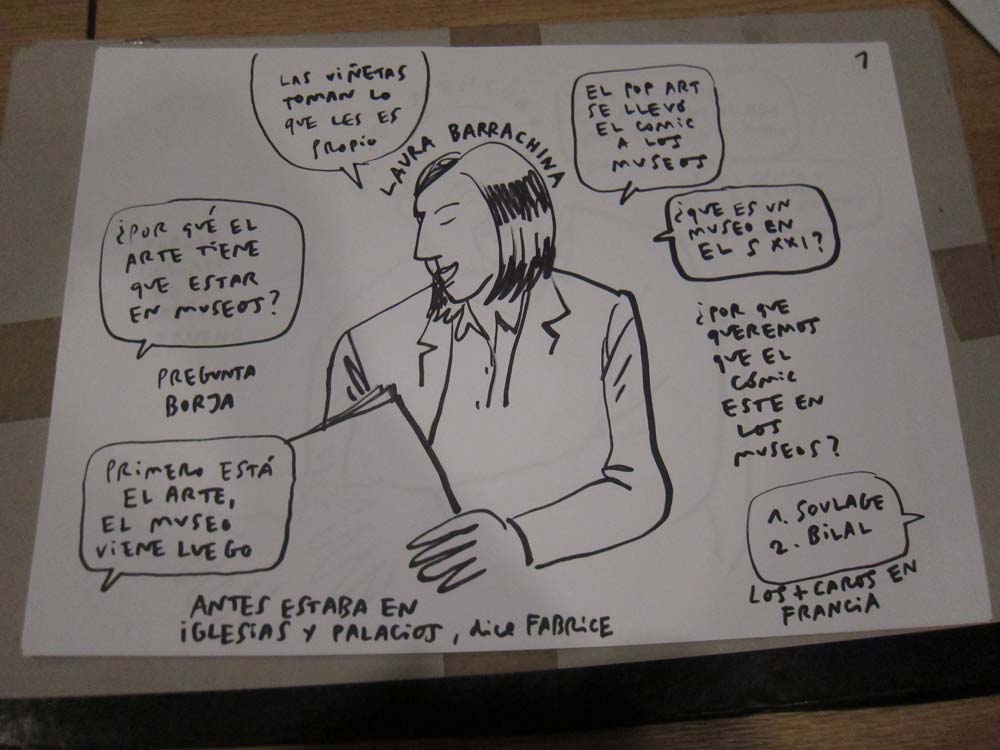 1
LAS VIÑETAS
TOMAN LO
QUE LES ES
PROPIO
LAURA BARRACHINA
EL POP ART
SE LLEVÓ
EL COMIC
A LOS
MUSEOS
¿POR QUÉ EL
ARTE TIENE
QUE ESTAR
EN MUSEOS?
PREGUNTA
BORJA
¿QUE ES UN
MUSEO EN
EL S XXI?
¿POR QUE
QUEREMOS
QUE EL
CÓMIC
ESTE EN
LOS
MUSEOS?
PRIMERO ESTÁ
EL ARTE,
EL MUSEO
VIENE LUEGO
1. SOULAGE
2. BILAL
LOS + CAROS EN
FRANCIA
ANTES ESTABA EN
IGLESIAS Y PALACIOS, dice FABRICE